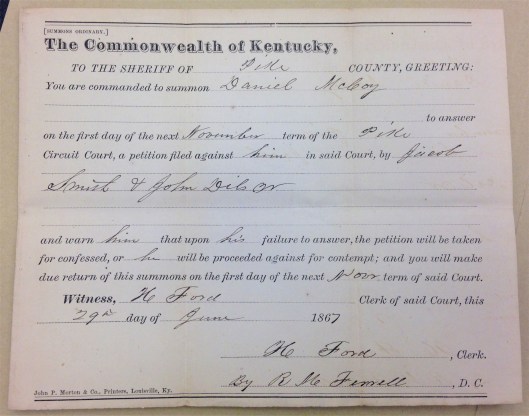 [SUMMONS ORDINARY.]
The Commonwealth of Kentucky,
TO THE SHERIFF OF Pike COUNTY, GREETING:
You are commanded to summon Daniel McCoy
to answer
on the first day of the next November term of the Pike
Circuit Court, a petition filed against him in said Court, by Jacob
Smith & John
and warn him that upon his failure to answer, the petition will be taken
for confessed, or he will be proceeded against for contempt; and you will make
due return of this summons on the first day of the next Novr term of said Court.
Witness, H Ford Clerk of said Court, this
29th day of June 1867
H Ford , Clerk.
By R M Ferrell , D. C.
John P. Morton & Co., Printers, Louisville, Ky.